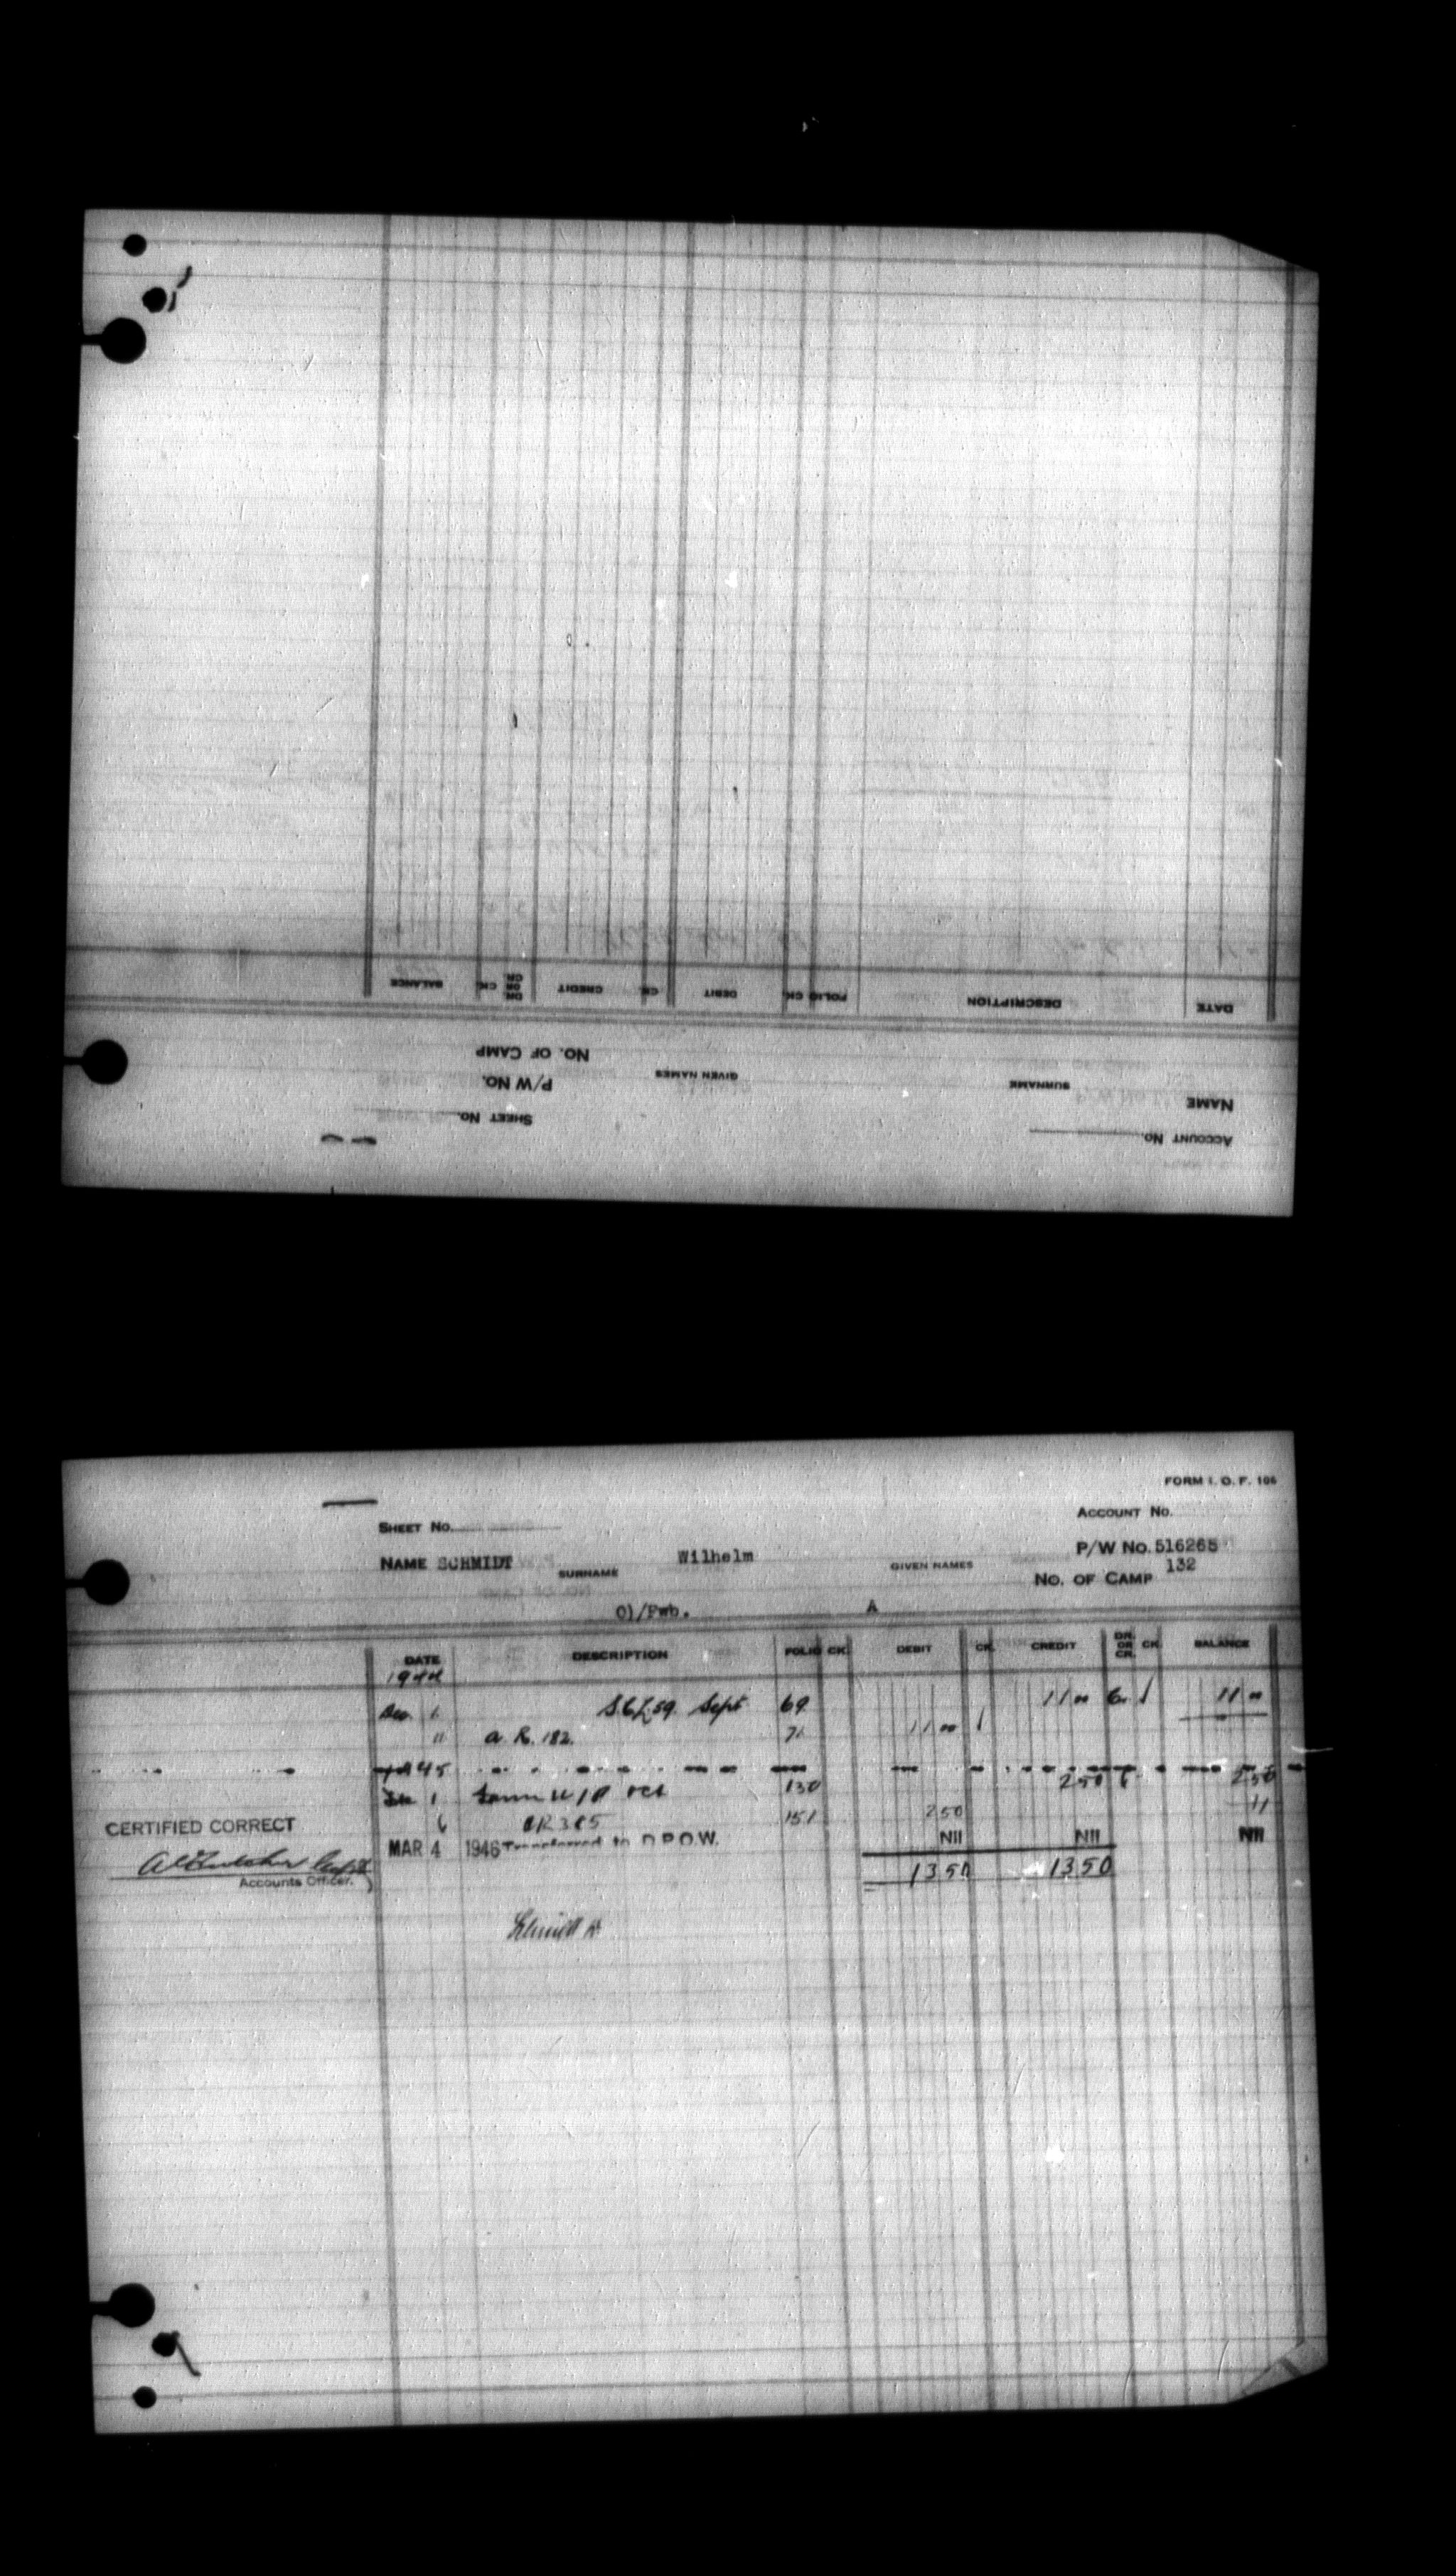 ACCOUNT No.
NAME SURNAME GIVEN NAMES
SHEET No.
P/W No.
NO. OF CAMP
DATE DESCRIPTION FOLIO CK. DEBIT CK. CREDIT DR. OR CR. CK. BALANCE
FORM I. O. F. 106
SHEET No. ACCOUNT No.
NAME SCHMIDT SURNAME Wilhelm GIVEN NAMES P/W No. 516265
NO. OF CAMP 132
O)/Fwb. A
DATE DESCRIPTION FOLIO CK. DEBIT CK. CREDIT DR. OR CR. CK. BALANCE
1944
1 Sept 69 11 00 11 00
" a. R. 182. 71 11 00
1945
1 Oct 130 2 50 2 50
6 151 2 50 11
CERTIFIED CORRECT
MAR 4 1946 Transferred to D.P.O.W. NIL NIL NIL
13 50 13 50
Accounts Officer.
Schmidt W